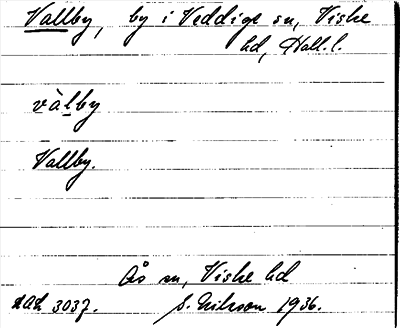 Vallby, by i Veddige sn, Viske
hd, Hall. l.
vàlby
Vallby.
Ås sn, Viske hd
3037. S. Nilsson 1936.